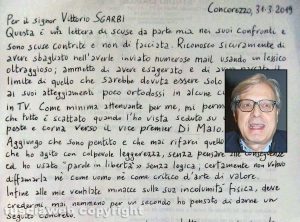 Concorezzo, 31-3-2019
Per il signor Vittorio SGARBI
Questa è una lettera di scuse da parte mia nei suoi confronti e
sono scuse contrite e non di facciata. Riconosco sicuramente di
avere sbagliato nell'avere inviato numerose mail usando un lessico
oltraggioso; ammetto di avere esagerato e di avere
limite di quello che sarebbe dovuta essere solo
ai suoi atteggiamenti poco ortodossi in alcune
in TV. Come minima attenuante per me, mi perm
che tutto è scattato quando l'ho vista seduto su
e corna verso il vice premier Di Maio.
Aggiungo che sono pentito e che mai rifarò quello
che ho agito con colpevole leggerezza, senza pensare alle conseguenze
ed ho usato "parole in libertà" e senza logica, certamente non volevo
diffamarla né come uomo né come critico d'arte di valore.
Infine alle mie ventilate minacce sulla sua incolumità fisica, deve
credermi, mai nemmeno per un secondo ho pensato di darne un
seguito concreto.